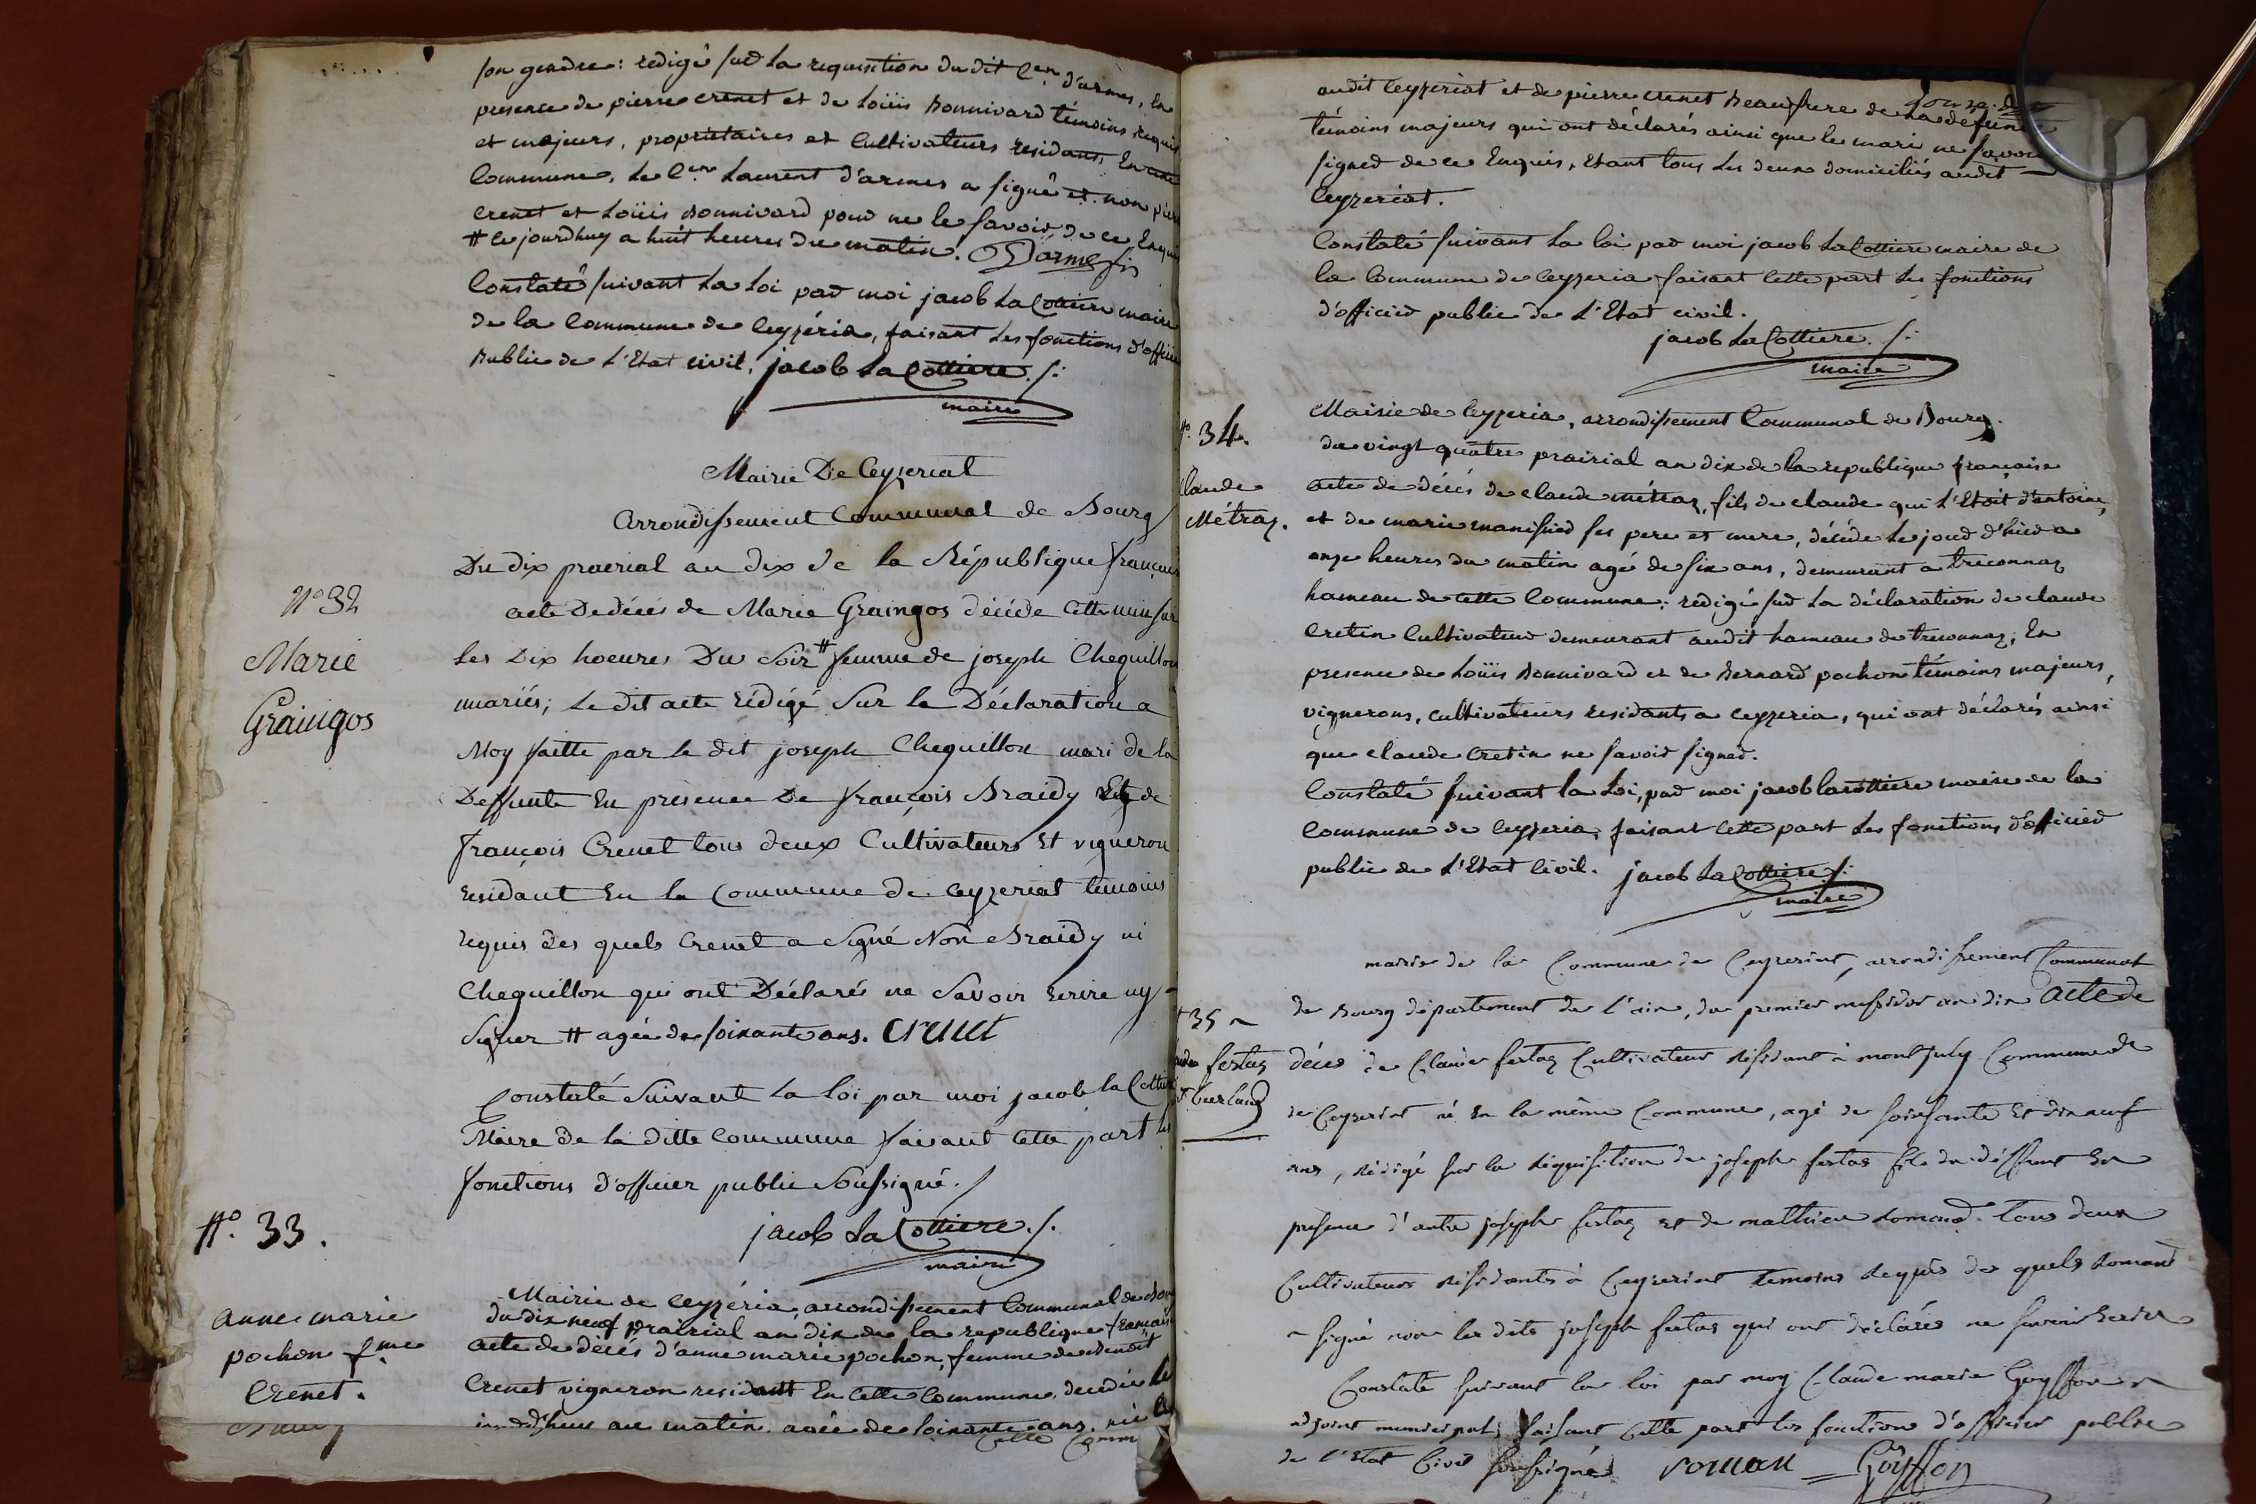 son gendre : rédigé sur la requisition du dit Cen d'armes, En
presence de pierre crenet et de Loüis Bonnivard témoins requis
et majeurs, propriétaires et Cultivateurs residans En cette
Commune, Le Cen Laurent d'armes a signé et non pierre
Crenet et Loüis Bonnivard pour ne le savoir de ce Enquis
# ce jourdhuy a huit heures du matin. Darmes
Constaté suivant La Loi par moi jacob La Cottiere maire
de la Commune de Ceyzéria, faisant Les fonctions d'officier
Public de L'Etat civil. jacob La Cottiere ./:
maire
Mairie De Ceyzeriat
arrondissement Communal de Bourg
N° 32
Marie
Graingos
Du dix praerial an dix de la République françaises
acte De décés de Marie Graingos décéde Cette nuit sur
Les Dix hoeures Du Soir # femme de joseph Chequillon
mariés; Le dit acte rédigé Sur la Déclaration a
Moy faitte par le dit joseph Chequillon mari de la
Deffunte En présence De françois Braidy Et de
françois Crenet tous deux Cultivateurs Et vigneron
residant En la Commune de Ceyzeriat témoins
requis des quels Crenet a Signé Non Braidy ni
Chequillon qui ont Déclarés ne Savoir Ecrire ny
Signer # agée de soixante ans. crenet
Constaté Suivant La Loi par moi jacob la Cottiere
Maire de la ditte Commune faisant Cette part les
fonctions d'officier public Soussigné ./
jacob La Cottiere ./.
maire
N°. 33.
anne marie
pochon fme
Crenet.
Mairie de Ceyzéria, arrondissement Communal de Bourg
du dix neuf prairial an dix de la republique française
acte de décés d'anne marie pochon, femme de Benoit
Crenet vigneron residant En Cette Commune, decedée le
jour d'hier au matin, agée de soixante ans, née
Cette Comm
audit Ceyzeriat et de pierre crenet Beau frere de La defunte
témoins majeurs qui ont déclarés ainsi que le mari ne savoir
signer de ce Enquis, Etant tous Les deux domiciliés audit
Ceyzeriat.
Constaté suivant La loi par moi jacob La Cottiere maire de
la Commune de Ceyzeria faisant Cette part Les fonctions
d'officier public de L'Etat civil.
jacob La Cottiere ./:
maire
N° 34.
Claude
Métraz.
Mairie de Ceyzeria, arrondissement Communal de Bourg.
du vingt quatre prairial an dix de la republique française
acte de décés de claude métraz, fils de claude qui L'Etoit d'antoine,
et de marie manissier ses pere et mere, décéde Le jour d'hier a
onze heures du matin agé de six ans, demeurant a treconnaz
hameau de cette Commune : redigé sur La déclaration de claude
Cretin Cultivateur demeurant audit hameau de treconnaz, En
presence de Loüis Bonnivard et de Bernard pochon témoins majeurs,
vignerons, cultivateurs residants a Ceyzeria, qui ont déclarés ainsi
que claude Cretin ne savoir signer.
Constaté suivant la Loi, par moi jacob la cottiere maire de la
Commune de Ceyzeria, faisant Cette part Les fonctions d'officier
public de L'Etat Civil. jacob La Cottiere ./:
maire
35
festaz
mairie de la Commune de Ceyzeriat, arrondissement Communal
de Bourg département de l'ain, du premier messidor an dix acte de
décés de Claude festaz Cultivateur résidant à montjuly Commune de
de Ceyzeriat né En la même Commune, agé de soissante Et dix neuf
ans, rédigé sur la réquisition de joseph festas fils du déffunt En
présence d'autre joseph festaz et de mathieu Romand. tous deux
Cultivateurs résidants à Ceyzeriat témoins requis des quels Romand
a signé non les dits joseph festas qui ont déclarés ne savoir Ecrire
Constaté suivant la loi par moy Claude marie Goyffon
adjoint municipal, faisant Cette part les fonctions d'officier public
de l'Etat Civil soussigné roman Goÿffon